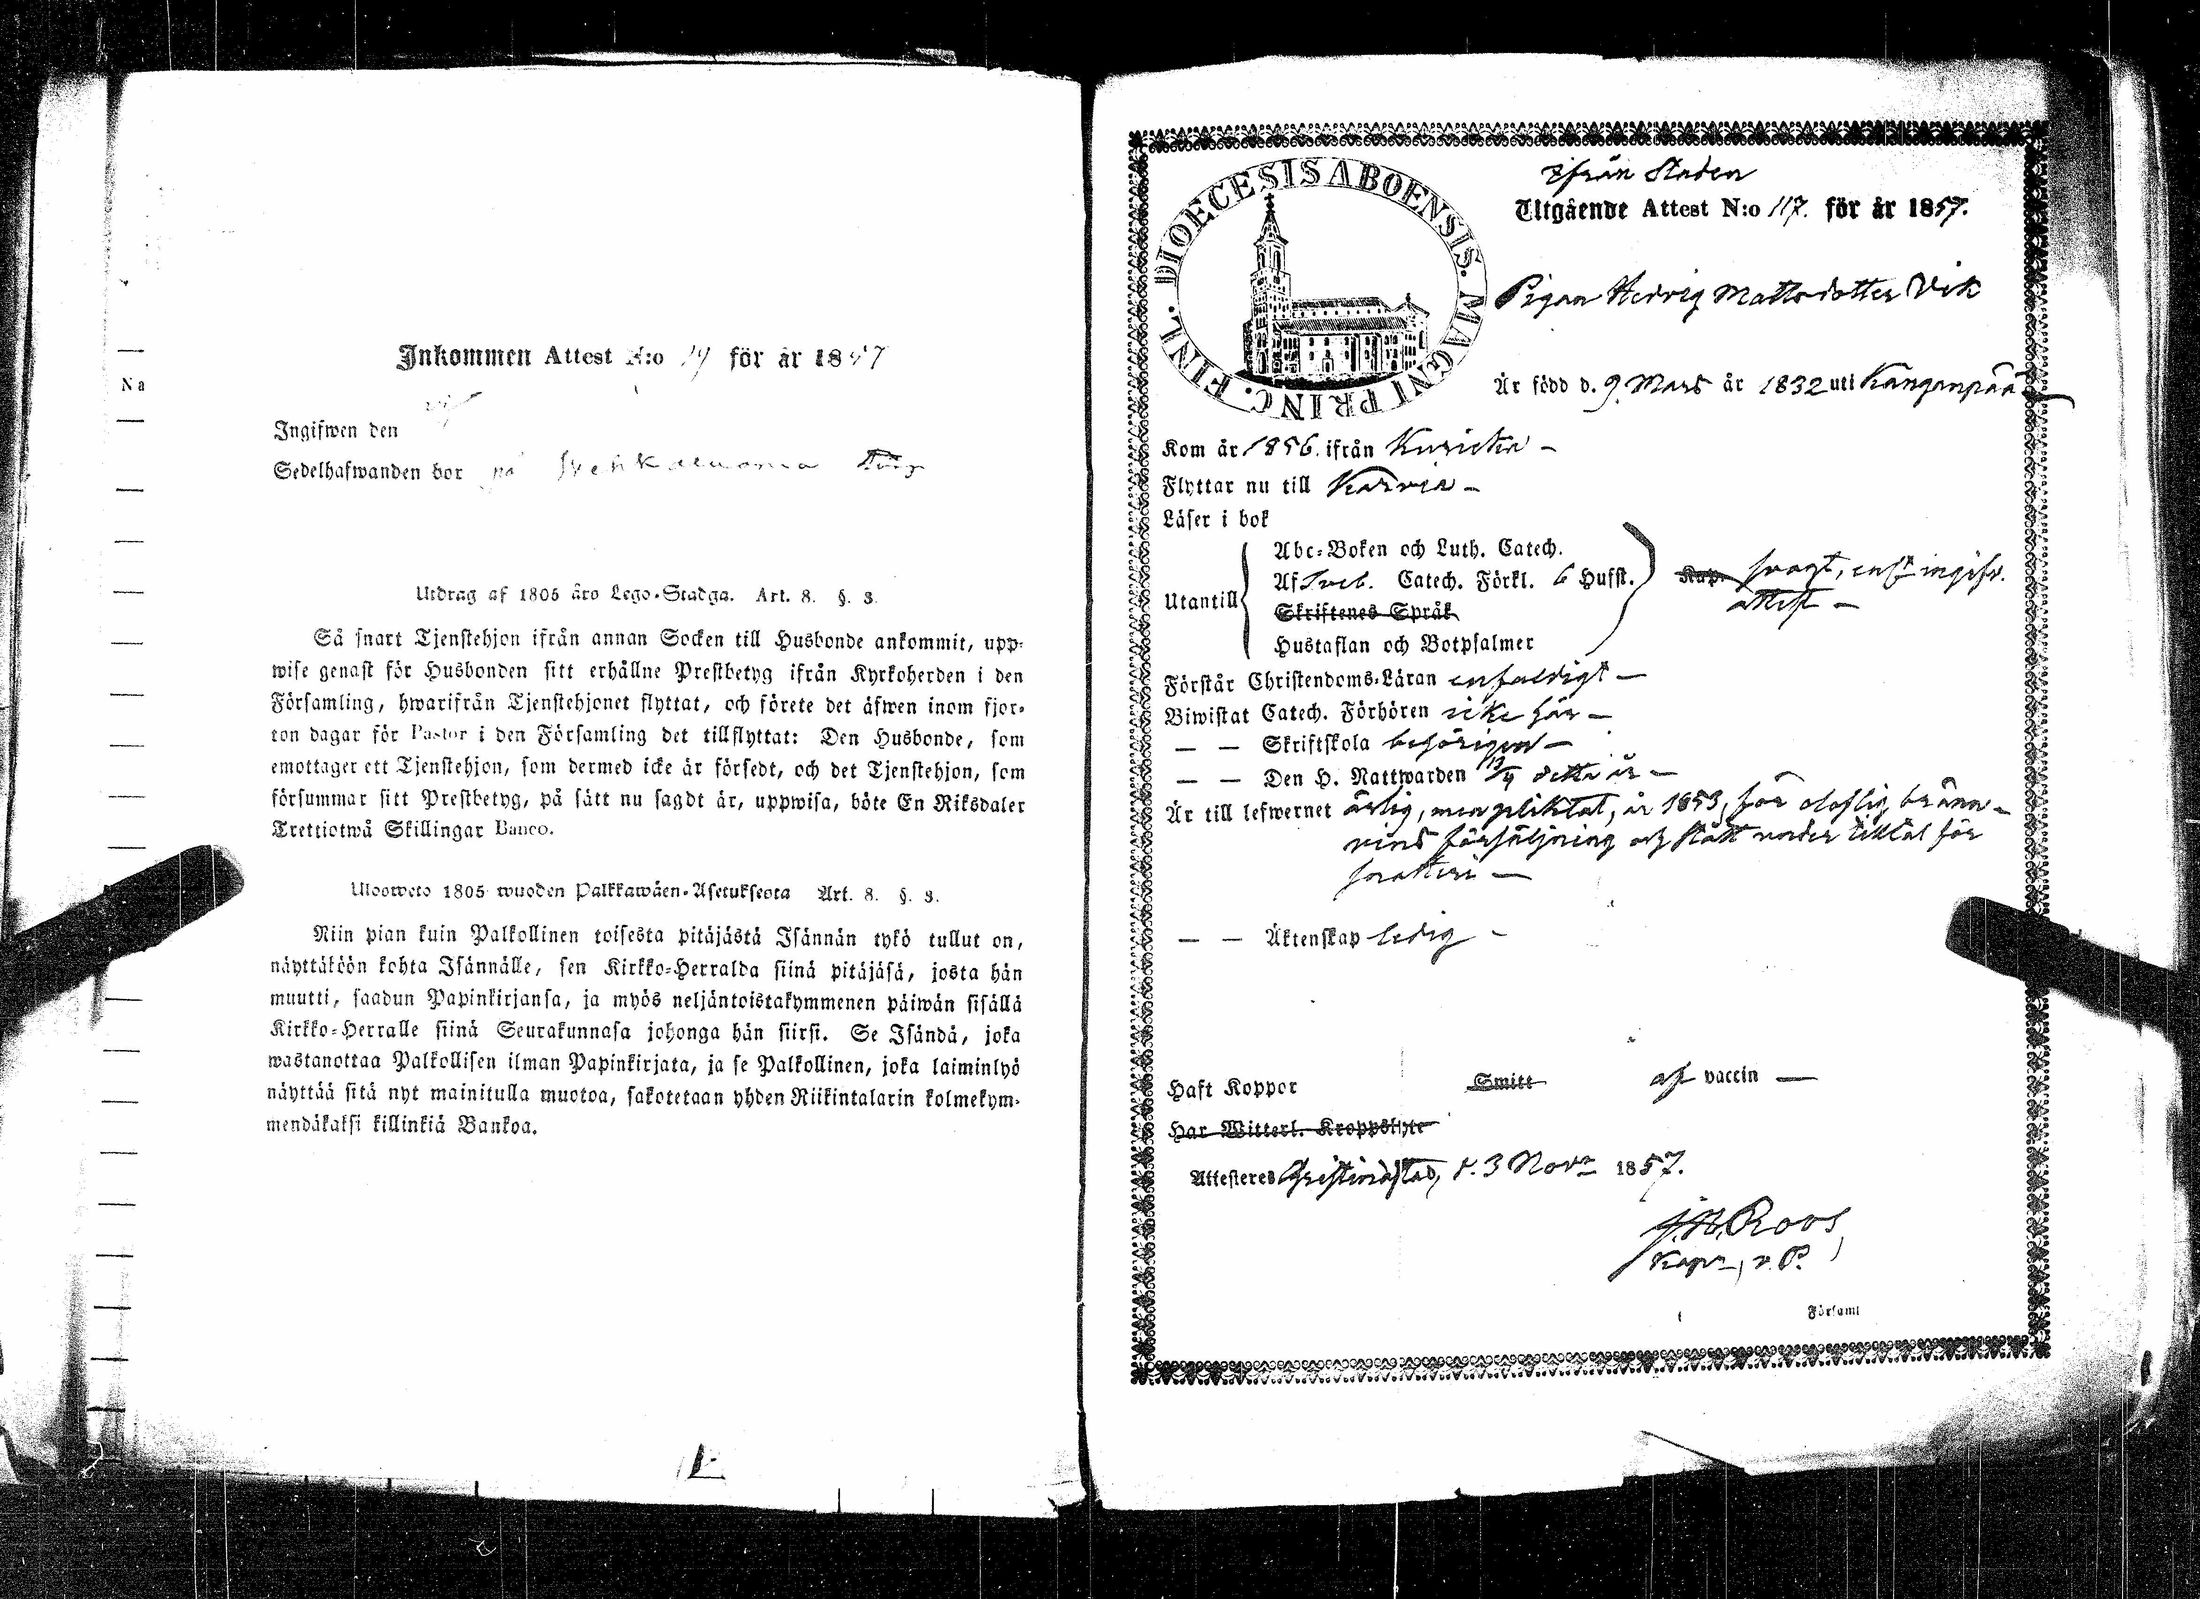 Inkommen Attest N:o 19 för år 1857
Ingifwen den
Sedelhafwanden bor på
Utdrag af 1805 års Lego-Stadga. Art. 8. §. 3.
Så snart Tjenstehjon ifrån annan Socken till Husbonde ankommit, upp-
wise genast för Husbonden sitt erhållne Prestbetyg ifrån Kyrkoherden i den
Församling, hwarifrån Tjenstehjonet flyttat, och förete det äfwen inom fjor-
ton dagar för Pastor i den Församling det tillflyttat: Den Husbonde, som
emottager ett Tjenstehjon, som dermed icke är försedt, och det Tjenstehjon, som
försummar sitt Prestbetyg, på sätt nu sagdt är, uppwisa, böte En Riksdaler
Trettiotwå Skillingar Banco.
Uloswето 1805 wuoden Palkkawäen-Asetuksesta Art. 8. §. 3.
Niin pian kuin Palkollinen toisesta pitäjästä Isännän tykö tullut on,
näyttäköön kohta Isännälle, sen Kirkko-Herralda siinä pitäjäsä, josta hän
muutti, saadun Papinkirjansa, ja myös neljäntoistakymmenen päiwän sisällä
Kirkko-Herralle siinä Seurakunnasa johonga hän siirsi. Se Isändä, joka
wastanottaa Palkollisen ilman Papinkirjata, ja se Palkollinen, joka laiminlyö
näyttää sitä nyt mainitulla muotoa, sakotetaan yhden Riikintalarin kolmekym-
mendäkaksi killinkiä Bankoa.
DIOECESIS ABOENSIS. MAGNI PRINC. FINL.
ifrån Staden
Utgående Attest N:o 117. för år 1857.
Pigan Hedvig Mattsdotter Vik
Är född d. 9 Mars år 1832 uti Kangenpää
Kom år 1856 ifrån Kurikka –
Flyttar nu till Karvia –
Läser i bok
Utantill
Abc-Boken och Luth. Catech.
Af Sveb. Catech. Förkl. 6 Hufst.
Skriftenes Språk
Hustaflan och Botpsalmer
Kap. svagt, enl. ingifv.
attest –
Förstår Christendoms-Läran enfaldigt –
Biwistat Catech. Förhören icke här –
– – Skriftskola behörigen –
– – Den H. Nattwarden 13/4 detta år –
Är till lefwernet ärlig, men pliktat, år 1853, för olaflig bränn-
vins försäljning och stått under tilltal för
snatteri –
– – Äktenskap ledig –
Haft Koppor Smitt af vaccin –
Har Witterl. Kroppslyte
Attesteres Christinestad, d. 3 Novr 1857.
J. N. Roos
Kapn, v. P.
Församl